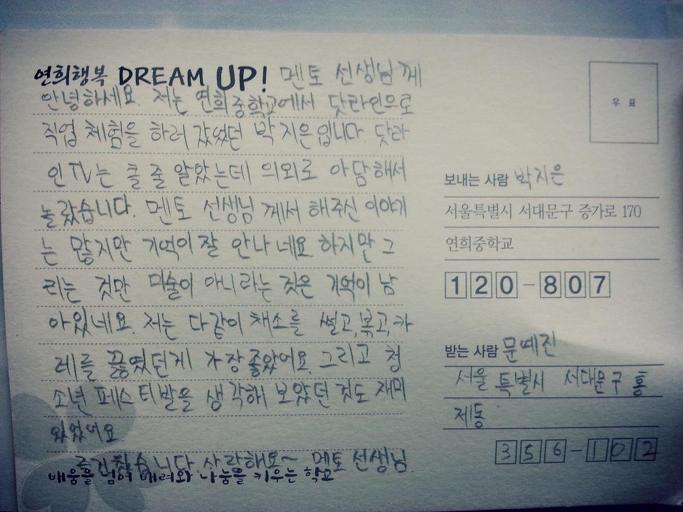 연희행복 DREAM UP! 멘토 선생님께
안녕하세요. 저는 연희중학교에서 닷라인으로
직업 체험을 하러 갔었던 박지은입니다. 닷라
인TV는 클 줄 알았는데 의외로 아담해서
놀랐습니다. 멘토 선생님께서 해주신 이야기
는 많지만 기억이 잘 안나네요 하지만 그
리는 것만 미술이 아니라는 것은 기억이 남
아있네요. 저는 다같이 채소를 썰고, 볶고, 카
레를 끓였던게 가장 좋았어요. 그리고 청
소년 페스티발을 생각해 보았던 것도 재미
있었어요
즐거웠습니다. 사랑해요~ 멘토 선생님.
배움을 넘어 배려와 나눔을 키우는 학교
우 표
보내는 사람 박지은
서울특별시 서대문구 증가로 170
연희중학교
120-807
받는 사람 문예진
서울 특별시 서대문구 홍
제동
356-102